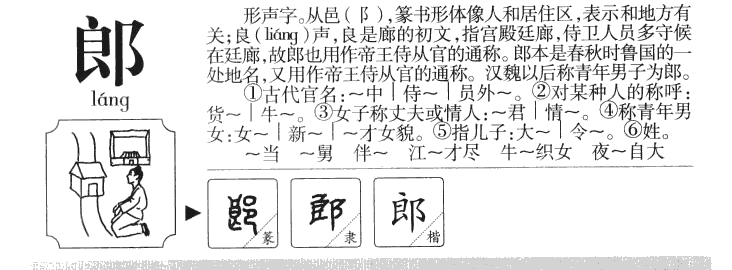 郎
láng
形声字。从邑(阝),篆书形体像人和居住区,表示和地方有
关;良(liáng)声,良是廊的初文,指宫殿廷廊,侍卫人员多守候
在廷廊,故郎也用作帝王侍从官的通称。郎本是春秋时鲁国的一
处地名,又用作帝王侍从官的通称。汉魏以后称青年男子为郎。
①古代官名:～中｜侍～｜员外～。②对某种人的称呼:
货～｜牛～。③女子称丈夫或情人:～君｜情～。④称青年男
女:女～｜新～｜～才女貌。⑤指儿子:大～｜令～。⑥姓。
～当　～舅　伴～　江～才尽　牛～织女　夜～自大
郎 篆 郎 隶 郎 楷